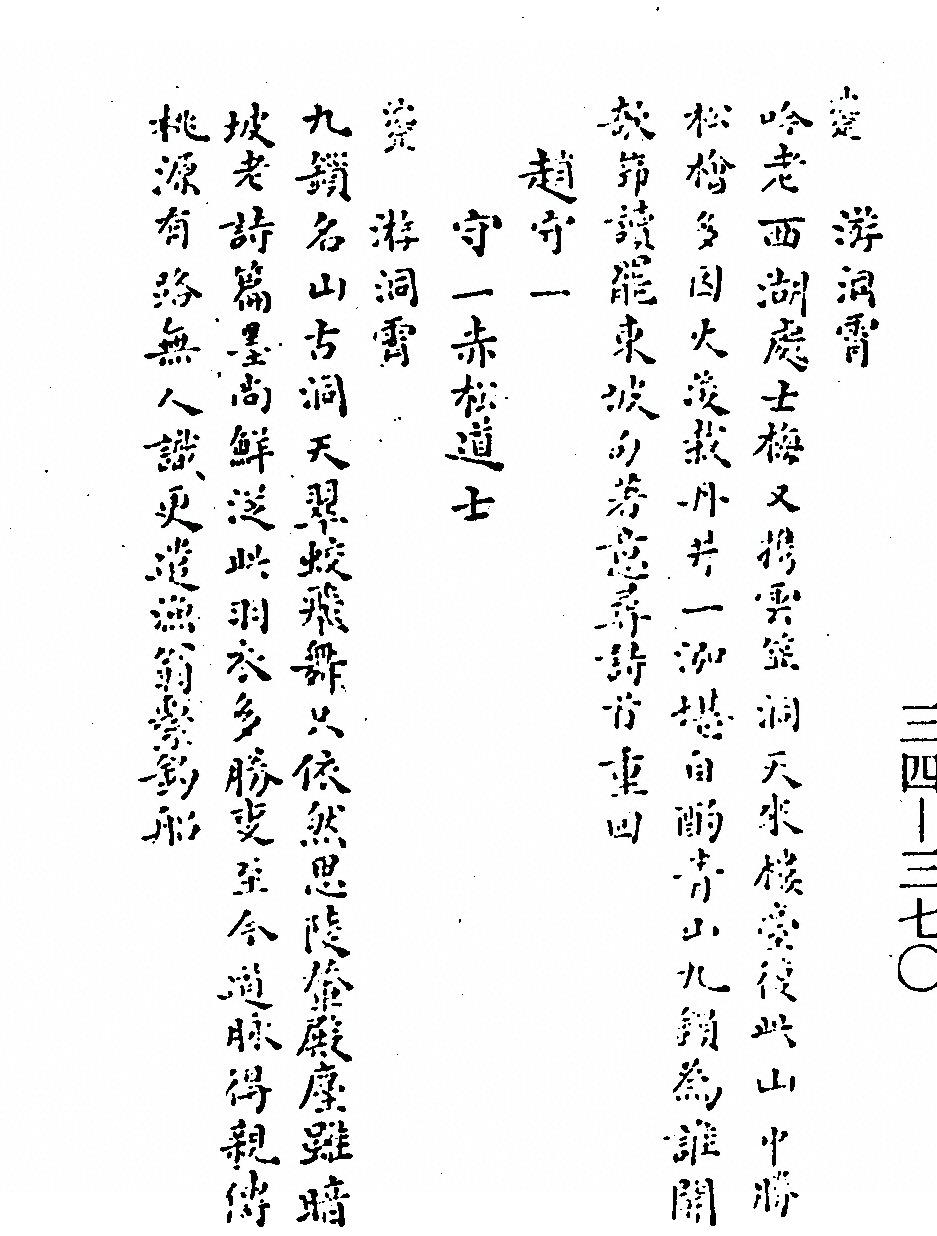 游洞霄
吟老西湖處士梅又携雲笠洞天來樓臺從此山中勝
松檜多因火後栽丹井一泓堪自酌青山九鎖為誰開
欹笻讀罷東坡句着意尋詩首重回
趙守一
守一赤松道士
游洞霄
九鎖名山古洞天翠蛟飛舞只依然思陵金殿塵雖暗
坡老詩篇墨尚鮮從此羽衣多勝事至今道脉得親傳
桃源有路無人識更遣漁翁繫釣船
三四—三七〇